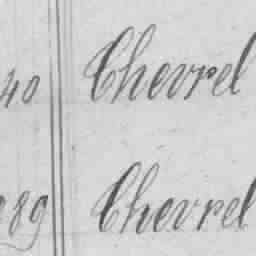 40 Chevrel
989 Chevrel